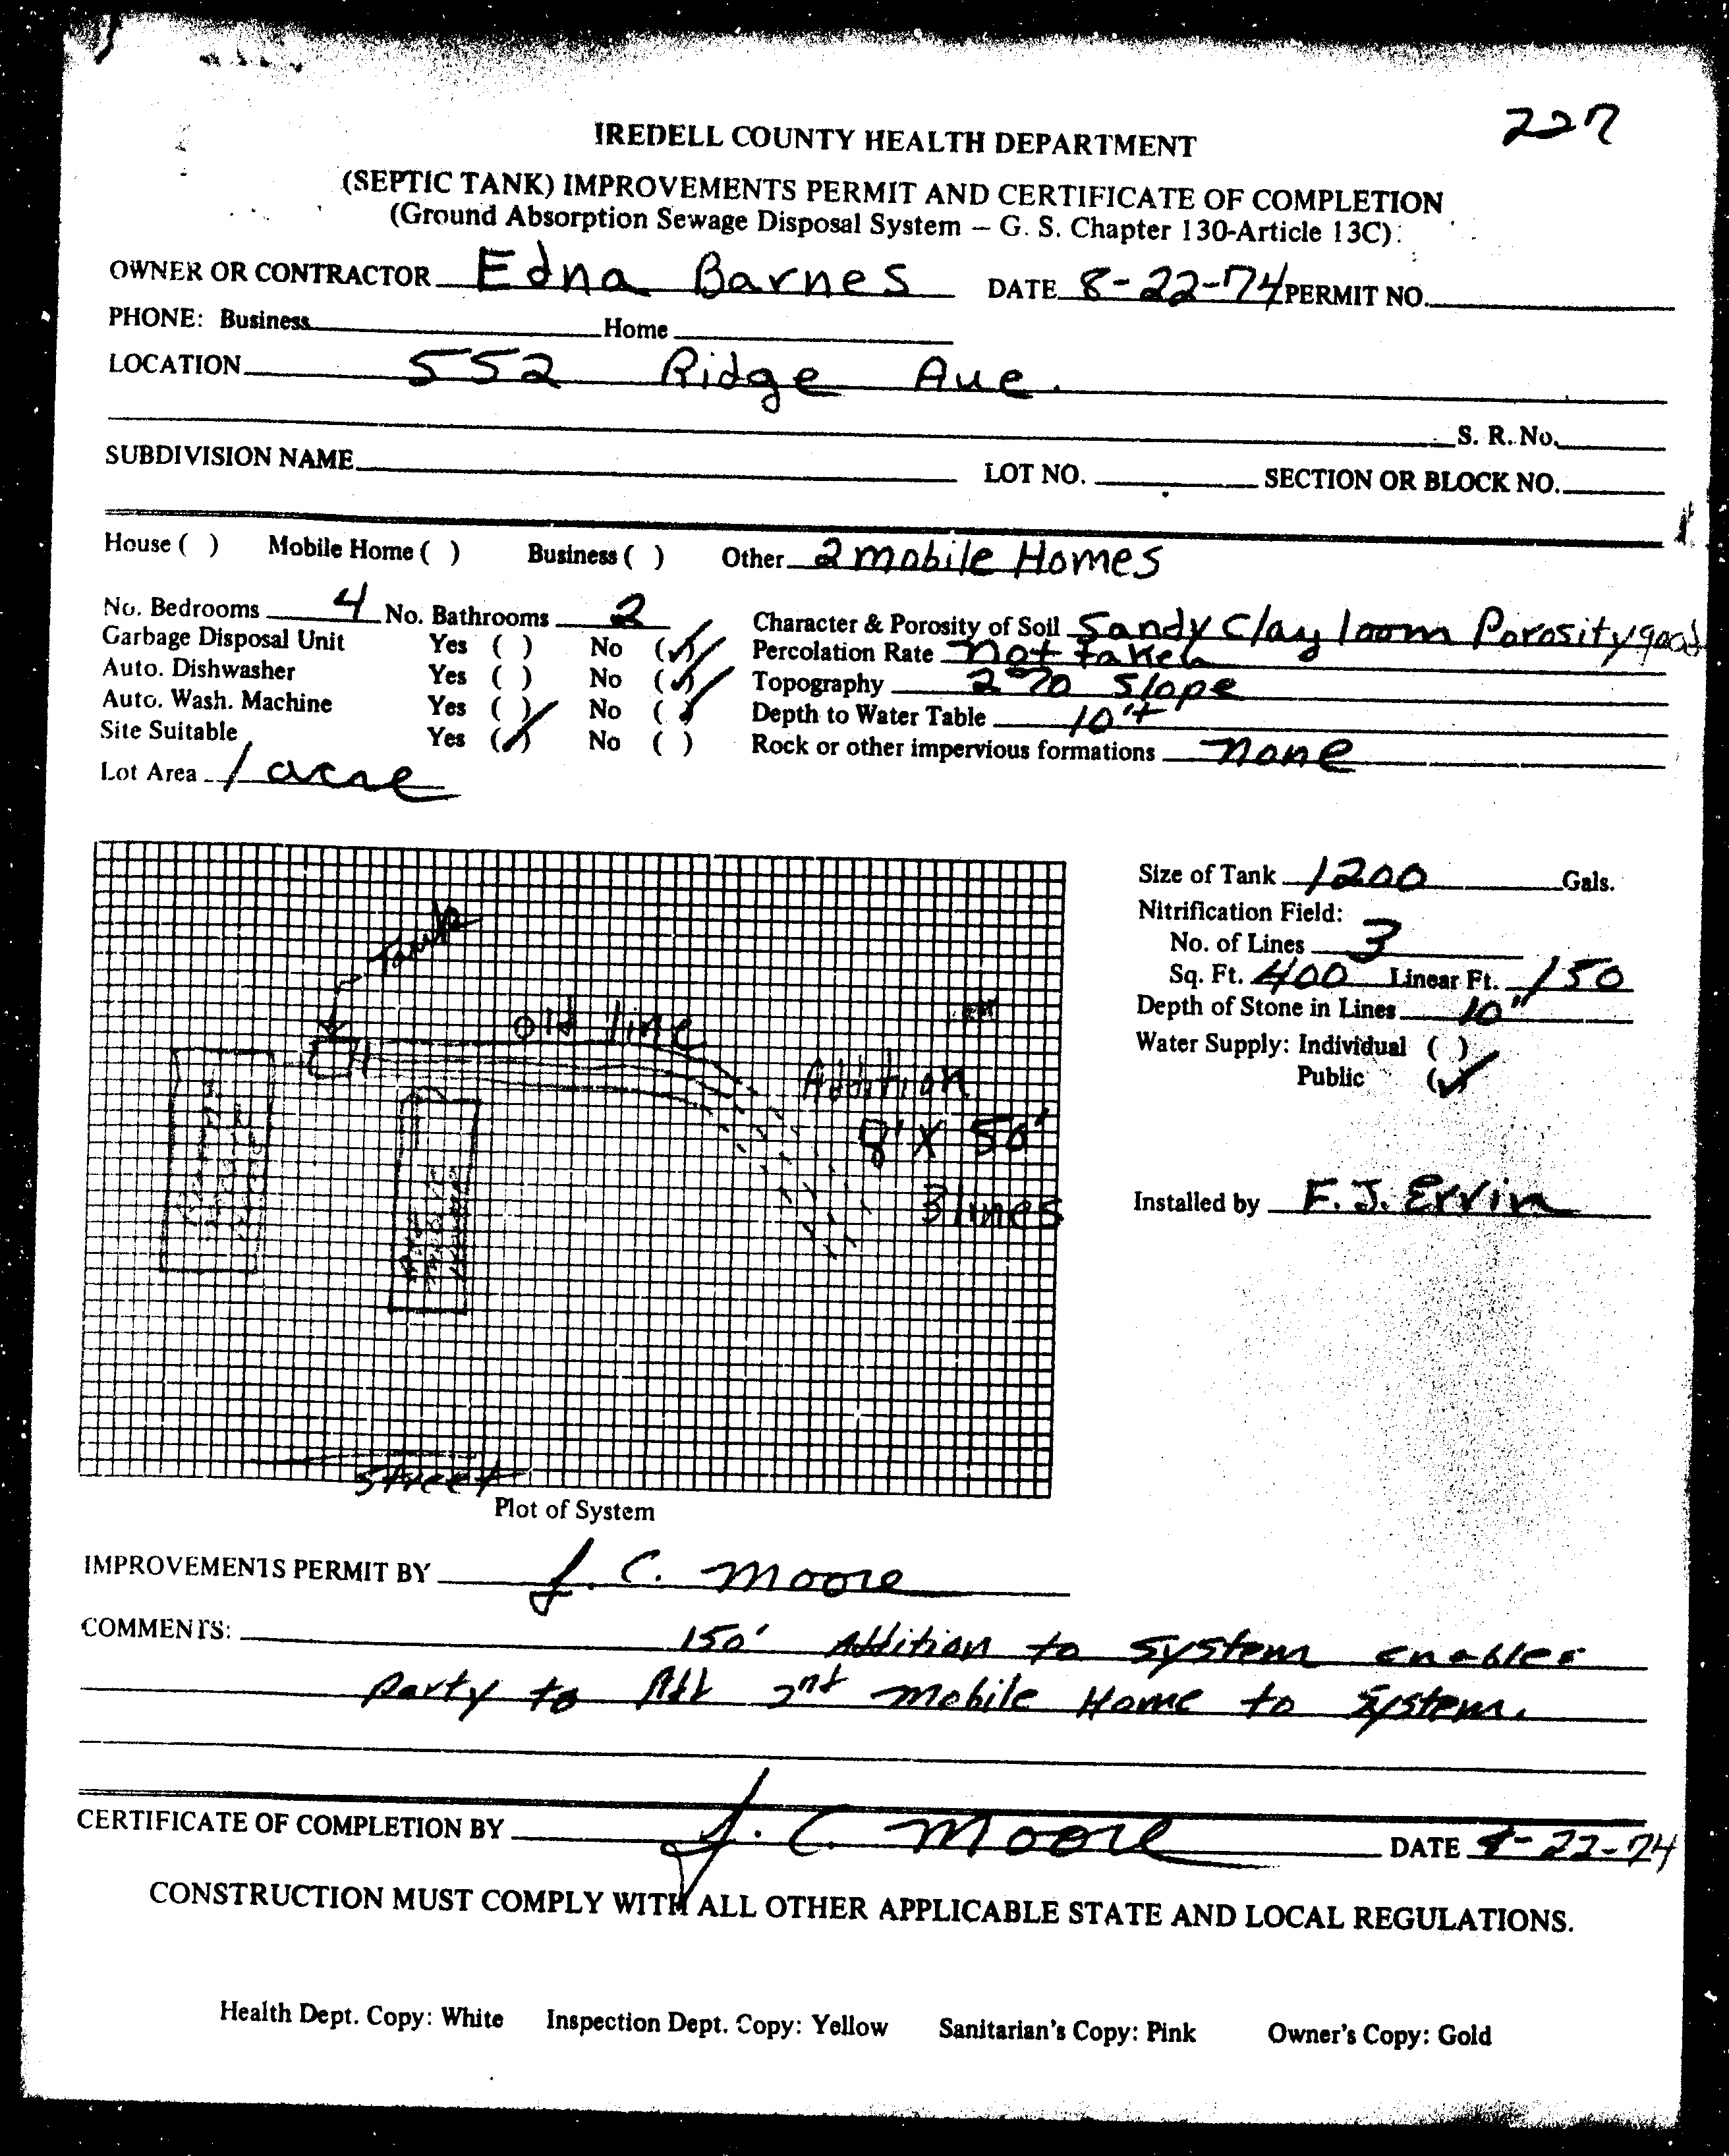 227
IREDELL COUNTY HEALTH DEPARTMENT
(SEPTIC TANK) IMPROVEMENTS PERMIT AND CERTIFICATE OF COMPLETION
(Ground Absorption Sewage Disposal System – G. S. Chapter 130-Article 13C)
OWNER OR CONTRACTOR Edna Barnes DATE 8-22-74 PERMIT NO.
PHONE: Business Home
LOCATION 552 Ridge Ave.
S. R. No.
SUBDIVISION NAME LOT NO. SECTION OR BLOCK NO.
House ( ) Mobile Home ( ) Business ( ) Other 2 mobile Homes
No. Bedrooms 4 No. Bathrooms 2 Character & Porosity of Soil Sandy Clay loom Porosity good
Garbage Disposal Unit Yes ( ) No (✓) Percolation Rate not taken
Auto. Dishwasher Yes ( ) No (✓) Topography 2% slope
Auto. Wash. Machine Yes ( ) No (✓) Depth to Water Table 10'+
Site Suitable Yes (✓) No ( ) Rock or other impervious formations none
Lot Area 1 acre
Size of Tank 1200 Gals.
Nitrification Field:
No. of Lines 3
Sq. Ft. 400 Linear Ft. 150
Depth of Stone in Lines 10"
Water Supply: Individual ( )
Public (✓)
Installed by F. J. Ervin
Tank
old line
Addition
8' X 50'
3 lines
Street
Plot of System
IMPROVEMENTS PERMIT BY J. C. Moore
COMMENTS: 150' Addition to system enables
party to Add 2nd mobile Home to system.
CERTIFICATE OF COMPLETION BY J. C. Moore DATE 8-22-74
CONSTRUCTION MUST COMPLY WITH ALL OTHER APPLICABLE STATE AND LOCAL REGULATIONS.
Health Dept. Copy: White Inspection Dept. Copy: Yellow Sanitarian's Copy: Pink Owner's Copy: Gold